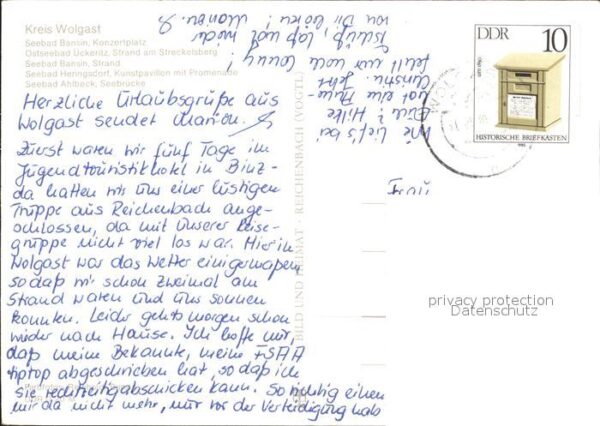 Kreis Wolgast
Seebad Bansin, Konzertplatz
Ostseebad Ückeritz, Strand am Streckelsberg
Seebad Bansin, Strand
Seebad Heringsdorf, Kunstpavillon mit Promenade
Seebad Ahlbeck, Seebrücke
Herzliche Urlaubsgrüße aus
Wolgast sendet Marion.
Zuerst waren wir fünf Tage im
Jugendtouristikhotel in Binz –
da hatten wir uns einer lustigen
Truppe aus Reichenbach ange-
schlossen, da mit unserer Reise-
gruppe nicht viel los war. Hier in
Wolgast war das Wetter einigermaßen,
so daß wir schon zweimal am
Strand waren und uns sonnen
konnten. Leider geht's morgen schon
wieder nach Hause. Ich hoffe nur,
daß meine Bekannte, meine
tiptop abgeschrieben hat, so daß ich
sie rechtzeitig abschicken kann. So richtig einen
mir da nicht mehr, nur vor der Verteidigung hab
Wie lief's bei
Dir? Hilke
hat eine
Christin. Jetzt
fehlt nur noch
Conny!
Tschüß, laß mal wieder
von Dir hören! Marion.
BILD UND HEIMAT · REICHENBACH (VOGTL)
DDR 10
HISTORISCHE BRIEFKASTEN
privacy protection
Datenschutz